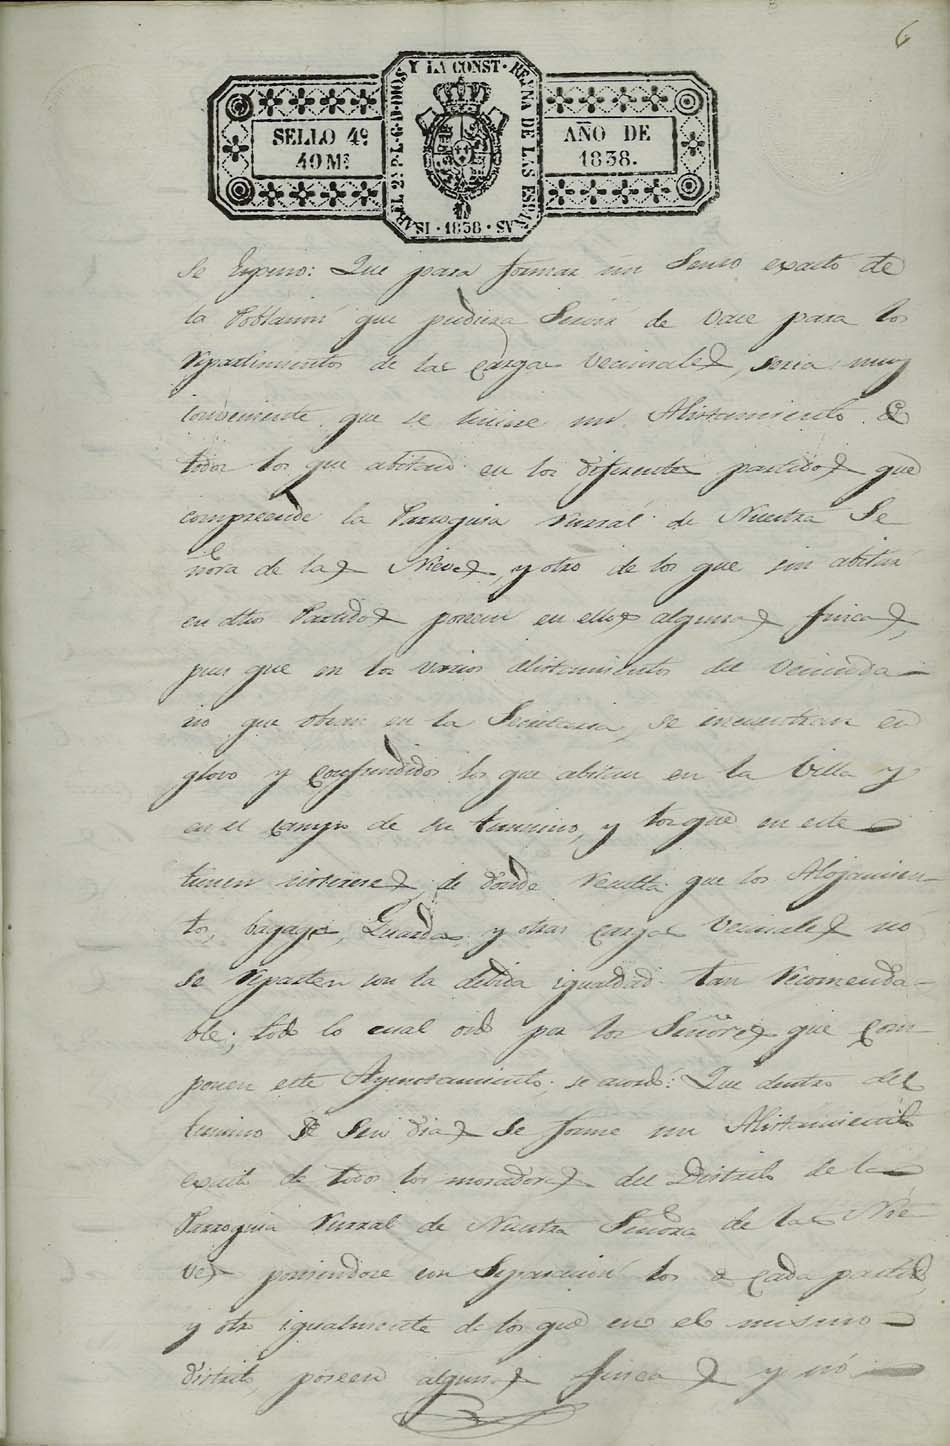 6
SELLO 4º
40 Ms.
ISABEL 2ª P. L. G. D. DIOS Y LA CONST. REYNA DE LAS ESPAÑAS
· 1838 ·
AÑO DE
1838.
Se Espuso: Que para formar un Senso exacto de
la Poblacion que pudiera Servir de vace para los
repartimientos de las cargas vecinales, seria muy
combeniente que se hiciese un Alistamiento de
todos los que abitan en los diferentes partidos que
comprende la Parroquia rurral de Nuestra Se
ñora de las Nieves, y otro de los que sin abitar
en dhos Partidos poseen en ellos algunas fincas,
pues que en los varios alistamientos del vecinda
rio que obran en la Secretaria, se encuentran en
glovo y confundidos los que abitan en la Villa y
en el campo de su termino, y los que en este
tienen vienes, de donde resulta que los Alojamien-
tos, bagages, Guardas y otras cargas vecinales no
se reparten con la debida igualdad tan recomenda-
ble; todo lo cual oido por los Señores que com-
ponen este Ayuntamiento, se acordó: Que dentro del
termino de Seis dias Se forme un Alistamiento
exacto de todos los moradores del Distrito de la
Parroquia rurral de Nuestra Señora de las Nie-
ves poniendose con Separacion los de cada partido,
y otro igualmente de los que en el mismo
distrito poseen algunas fincas y nó